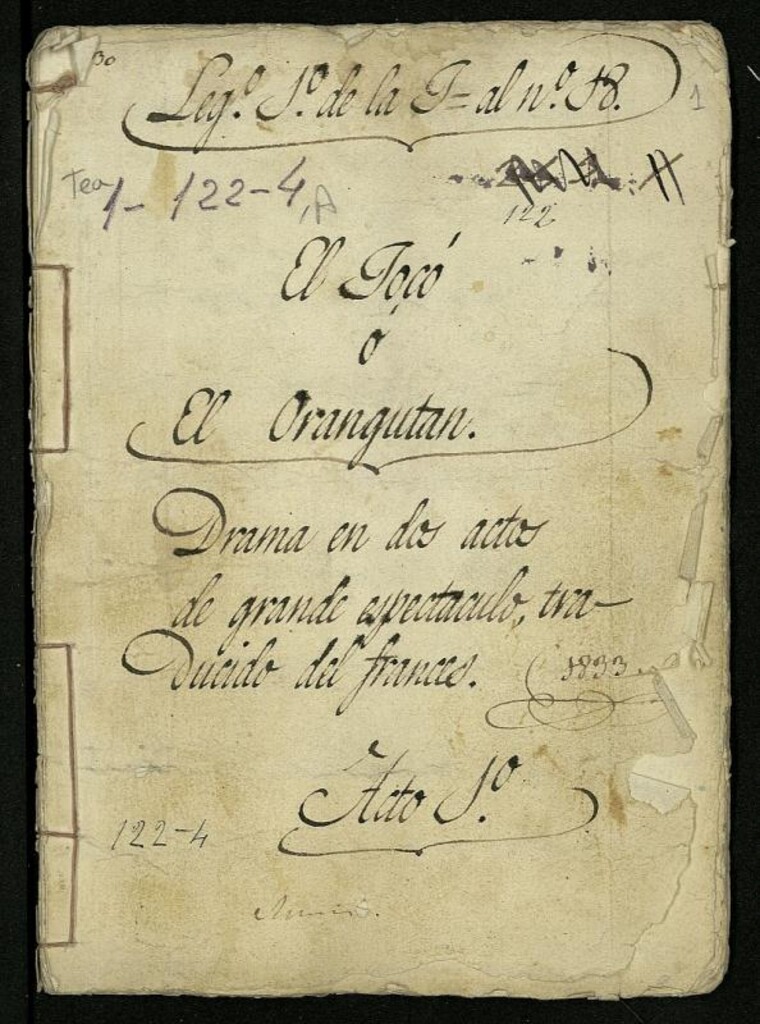 30
Leg.º 1º. de la T= al nº. 18.
1
Tea
1-122-4, A
122
El Jocó
ó
El Orangutan.
Drama en dos actos
de grande espectaculo, tra-
ducido del frances. 1833.
Acto 1º.
122-4